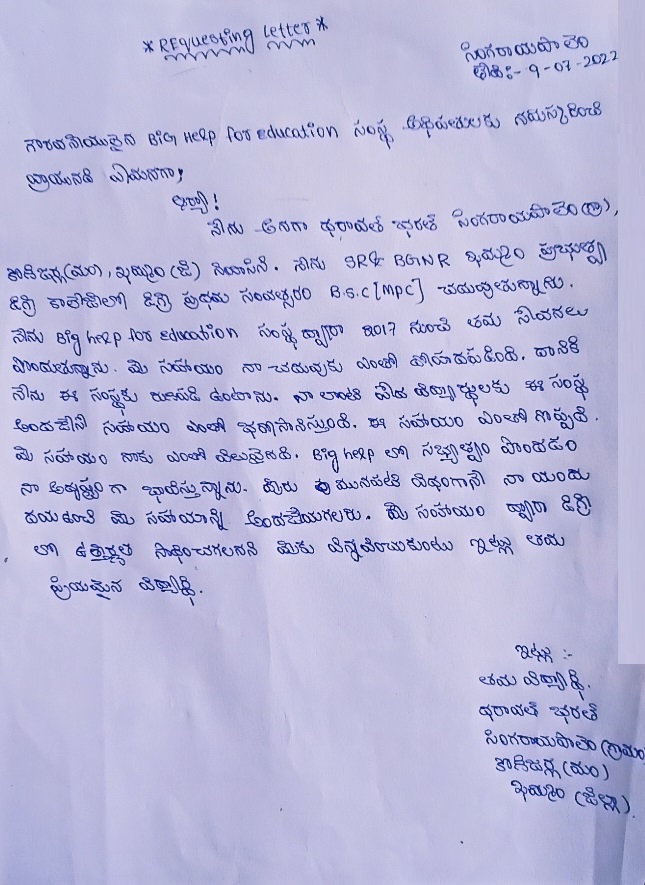 * REquesting Letter *
సింగరాయపాలెం
తేది:- 9-07-2022
గౌరవనీయులైన BIG Help for education సంస్థ అధిపతులకు నమస్కరించి
వ్రాయునది ఏమనగా;
అయ్యా!
నేను అనగా ధరావత్ భరత్ సింగరాయపాలెం(గ్రా),
(మం), ఖమ్మం (జి) నివాసిని. నేను SR& BGNR ఖమ్మం ప్రభుత్వ
డిగ్రీ కాలేజీలో డిగ్రీ ప్రథమ సంవత్సరం B.S.C [MPC] చదువుతున్నాను.
నేను Big help for education సంస్థ ద్వారా 2017 నుంచి తమ సేవలను
పొందుతున్నాను. మీ సహాయం నా చదువుకు ఎంతో దోహదపడింది. దానికి
నేను ఈ సంస్థకు రుణపడి ఉంటాను. నా లాంటి పేద విద్యార్థులకు ఈ సంస్థ
అందజేసే సహాయం ఎంతో భరోసానిస్తుంది. ఈ సహాయం ఎంతో గొప్పది.
మీ సహాయం నాకు ఎంతో విలువైనది. Big help లో సభ్యత్వం పొందడం
నా అదృష్టం గా భావిస్తున్నాను. మీరు మునపటి విధంగానే నా యందు
దయఉంచి మీ సహాయాన్ని అందజేయగలరు. మీ సహాయం ద్వారా డిగ్రీ
లో ఉత్తీర్ణత సాధించగలనని మీకు విన్నవించుకుంటు ఇట్లు తమ
ప్రియమైన విద్యార్థి.
ఇట్లు :-
తమ విద్యార్థి.
ధరావత్ భరత్
సింగరాయపాలెం (గ్రామం)
(మం)
ఖమ్మం (జిల్లా).